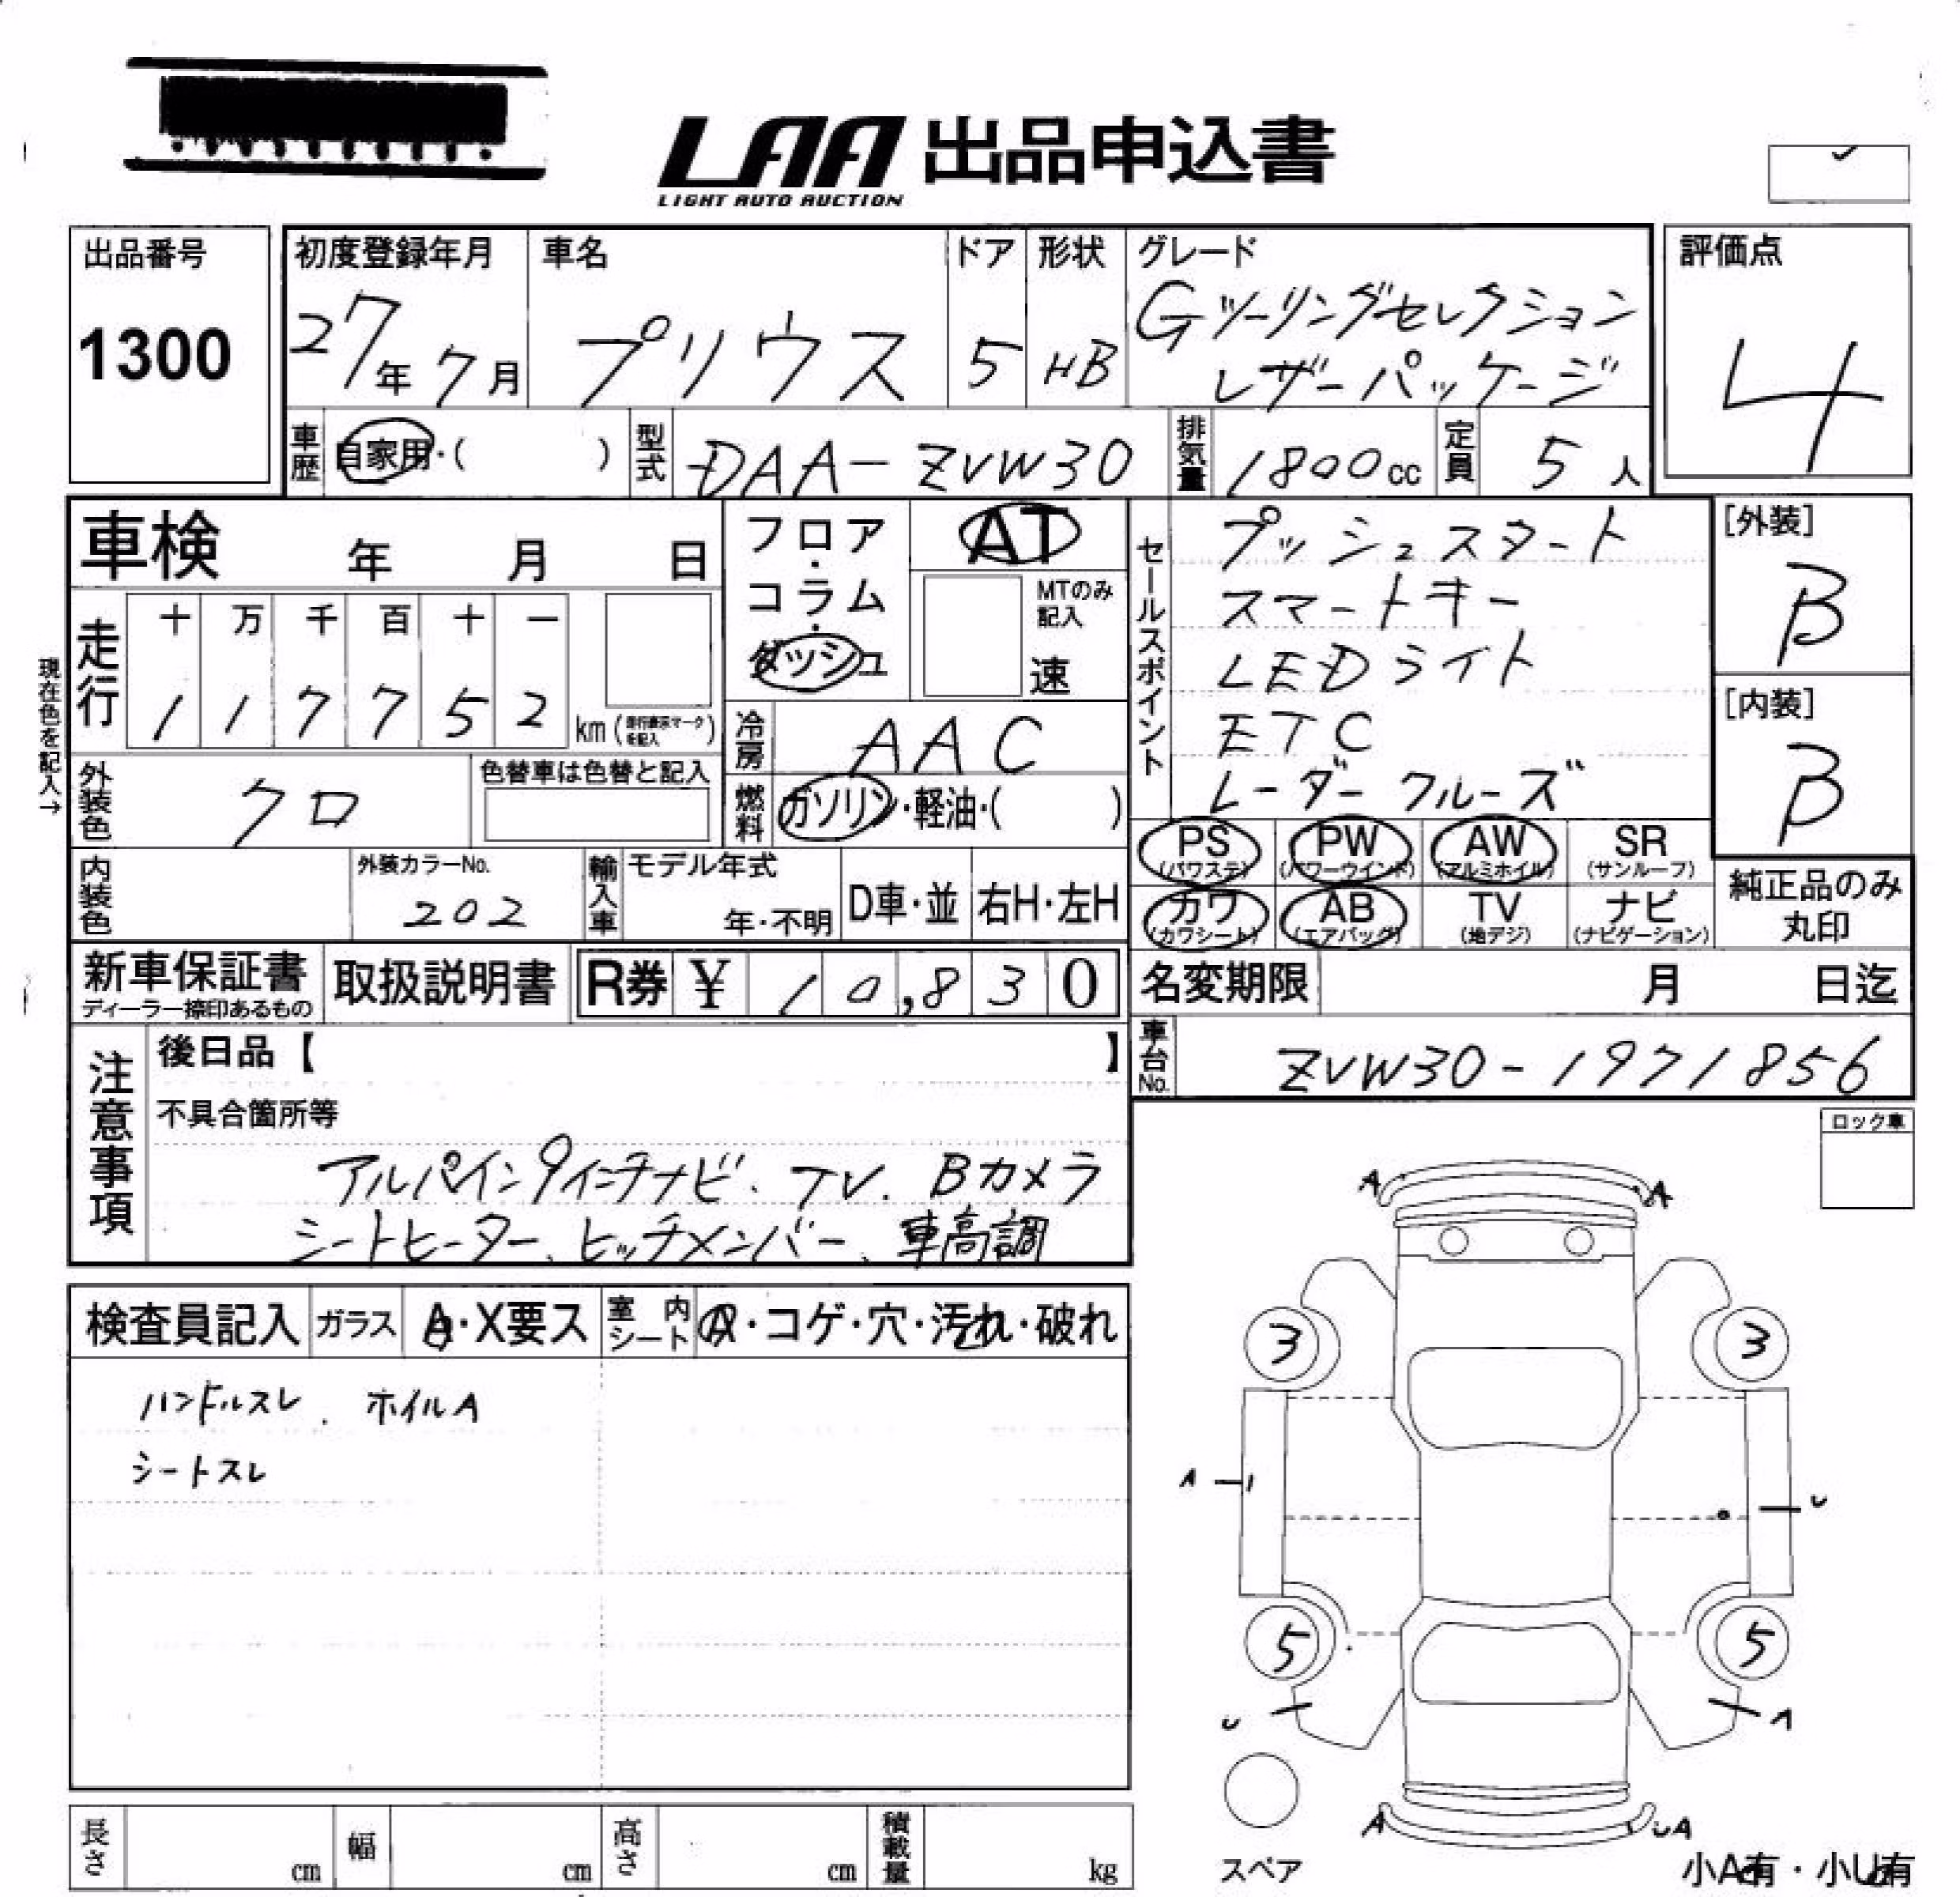 LAA 出品申込書
LIGHT AUTO AUCTION
出品番号
1300
初度登録年月
27年 7月
車名
プリウス
ドア
5
形状
HB
グレード
Gツーリングセレクション
レザーパッケージ
評価点
4
車歴
自家用・( )
型式
DAA-ZVW30
排気量
1800cc
定員
5人
車検 年 月 日
フロア・コラム・ダッシュ
AT
MTのみ記入
速
セールスポイント
プッシュスタート
スマートキー
LEDライト
ETC
レーダークルーズ
[外装]
B
[内装]
B
現在色を記入→
走行
十 万 千 百 十 一
1 1 7 7 5 2 km (
)
冷房
AAC
外装色
クロ
色替車は色替と記入
燃料
ガソリン・軽油・( )
内装色
外装カラーNo.
202
輸入車
モデル年式
年・不明
D車・並
右H・左H
PS (パワステ)
PW (パワーウインド)
AW (アルミホイル)
SR (サンルーフ)
カワ (カワシート)
AB (エアバッグ)
TV (地デジ)
ナビ (ナビゲーション)
純正品のみ丸印
新車保証書
ディーラー捺印あるもの
取扱説明書
R券 ¥ 10,830
名変期限 月 日迄
車台No.
ZVW30-1971856
注意事項
後日品【 】
不具合箇所等
アルパイン9インチナビ. TV. Bカメラ
シートヒーター、ヒッチメンバー、車高調
ロック車
検査員記入
ガラス
A・X要ス
室内シート
・コゲ・穴・汚れ・破れ
ハンドルスレ. ホイルA
シートスレ
A A
3 3
A U
5 5
U A
A UA
スペア
小A有・小U有
長さ cm
幅 cm
高さ cm
積載量 kg